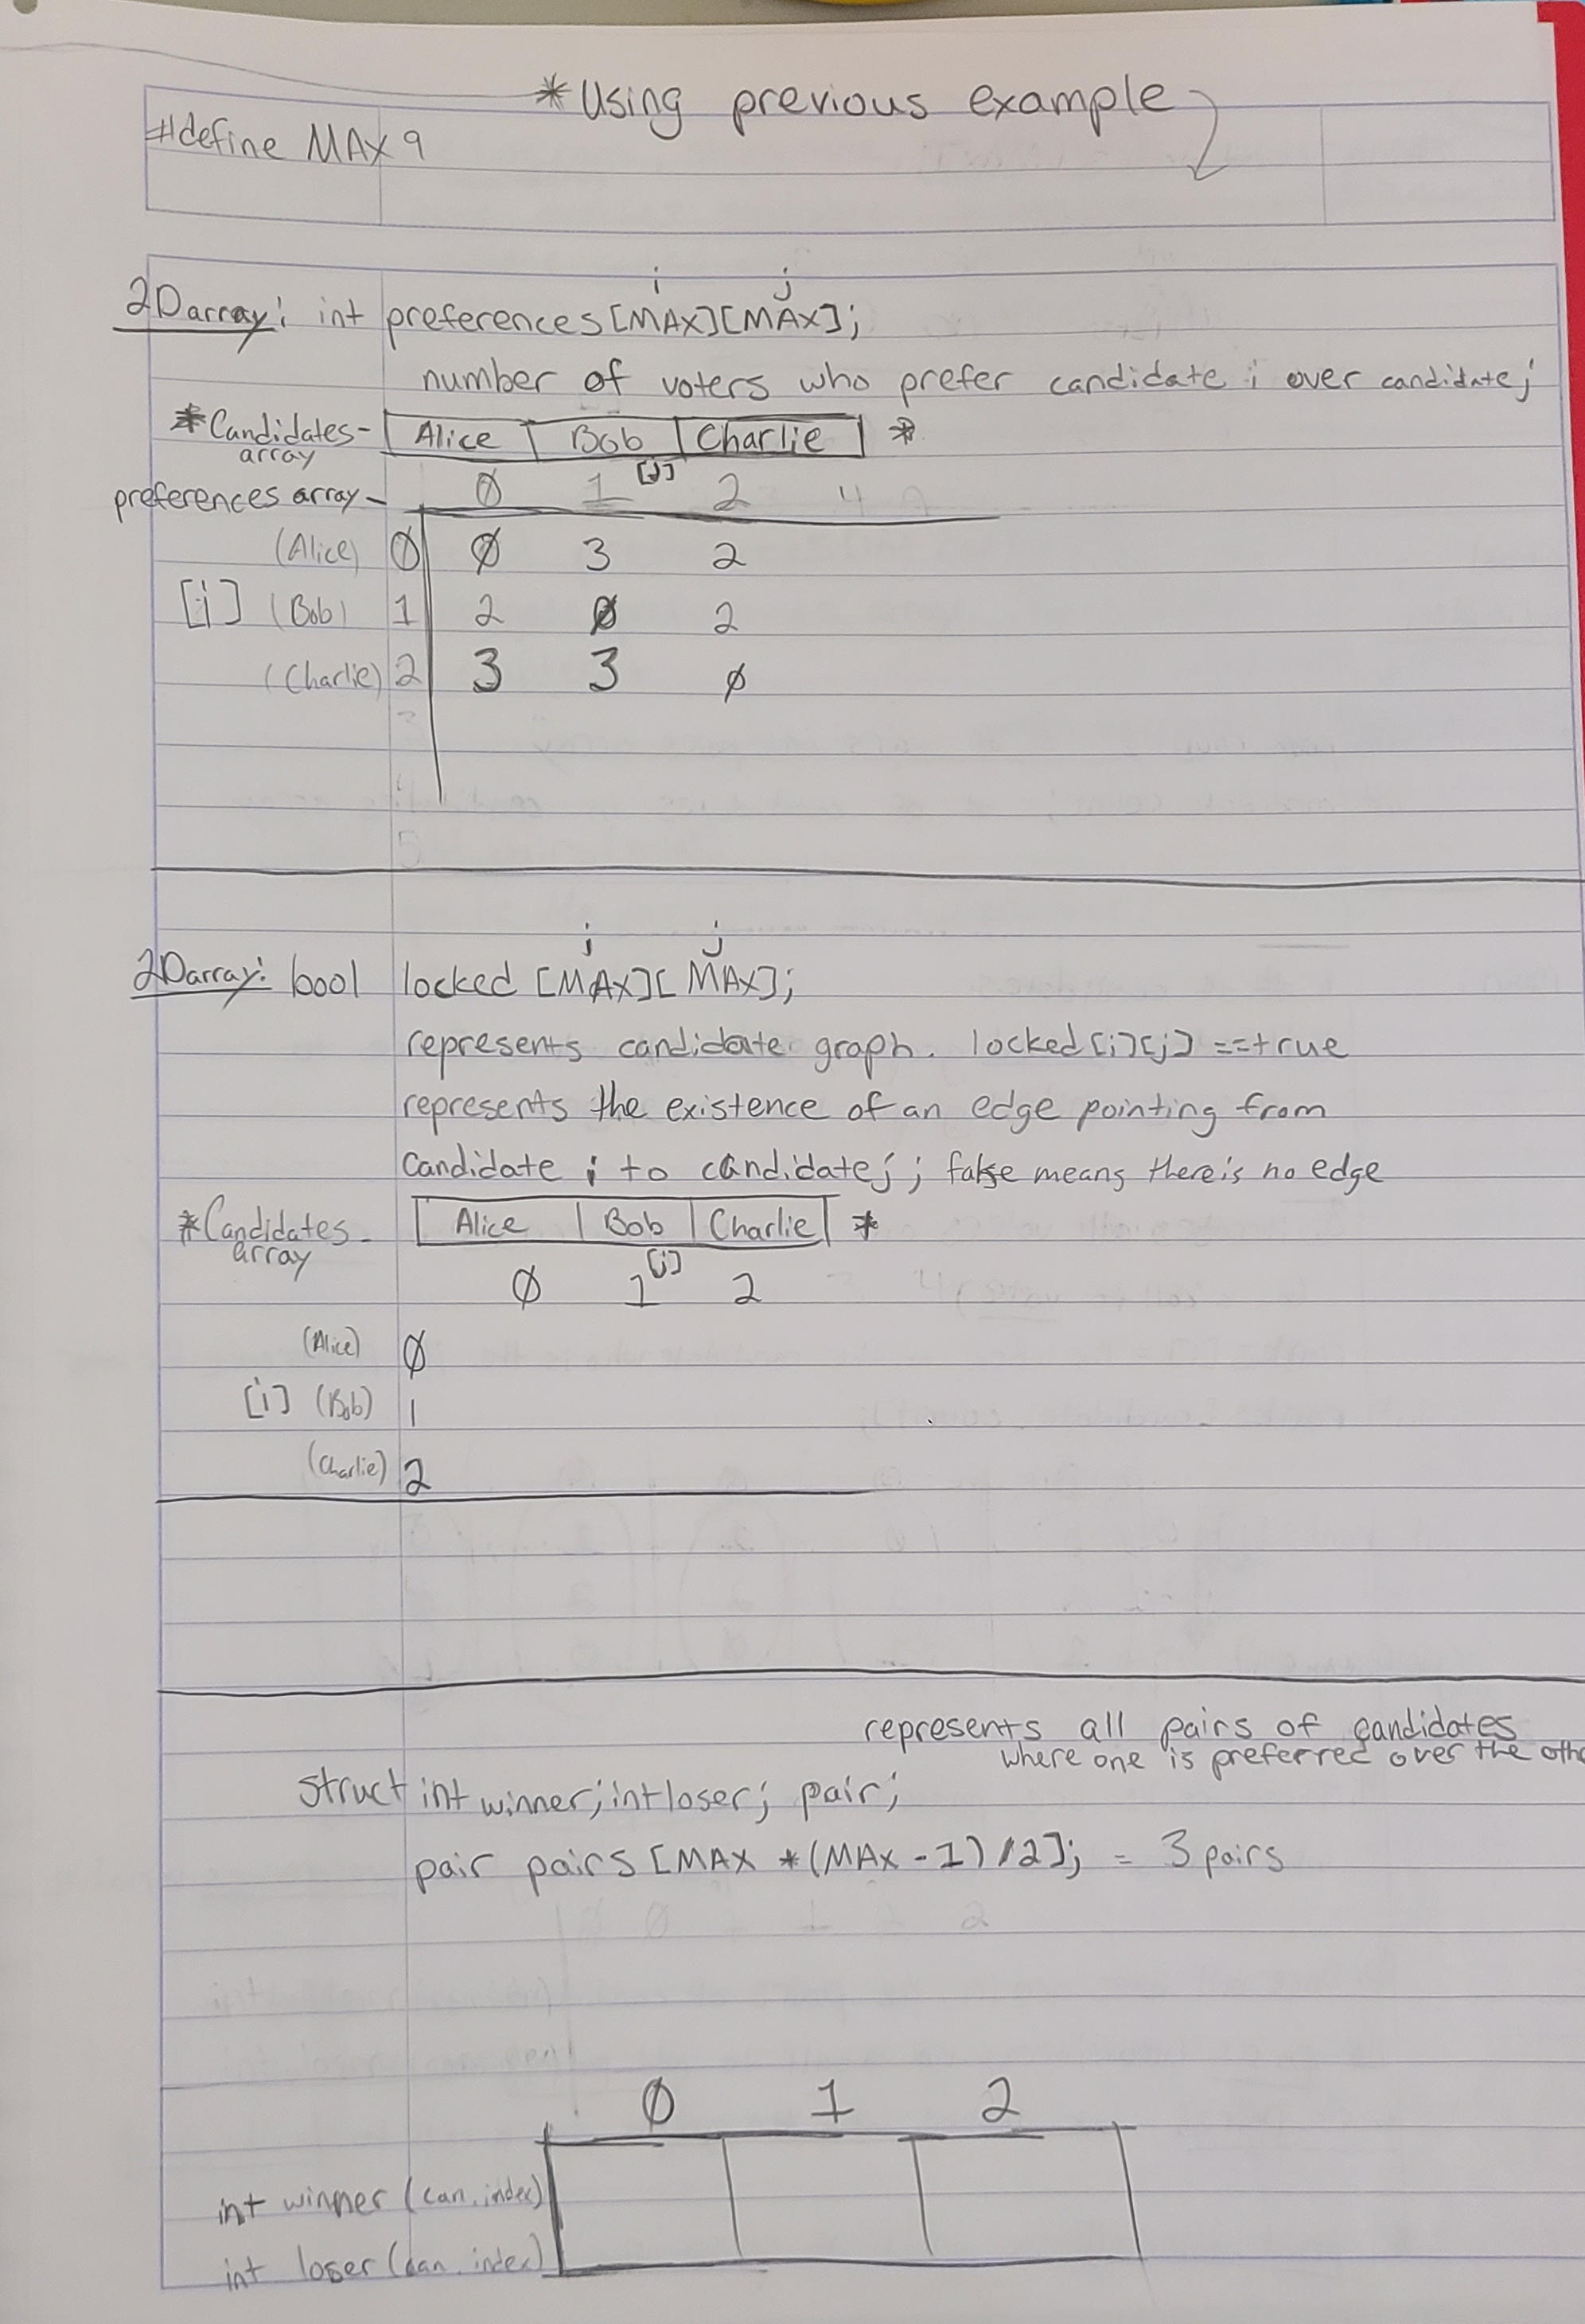 *Using previous example
#define MAX 9
i j
2Darray: int preferences[MAX][MAX];
number of voters who prefer candidate i over candidate j
*Candidates- Alice Bob Charlie *
array
[j]
preferences array- 0 1 2 4
(Alice) 0 0 3 2
[i] (Bob) 1 2 0 2
(Charlie) 2 3 3 0
i j
2Darray: bool locked [MAX][MAX];
represents candidate graph. locked[i][j] ==true
represents the existence of an edge pointing from
candidate i to candidate j; false means there is no edge
*Candidates- Alice Bob Charlie *
array
[j]
0 1 2
(Alice) 0
[i] (Bob) 1
(Charlie) 2
represents all pairs of candidates
where one is preferred over the othe
struct int winner; int loser; pair;
pair pairs [MAX *(MAX - 1) /2]; = 3 pairs
0 1 2
int winner (can. index)
int loser (can. index)